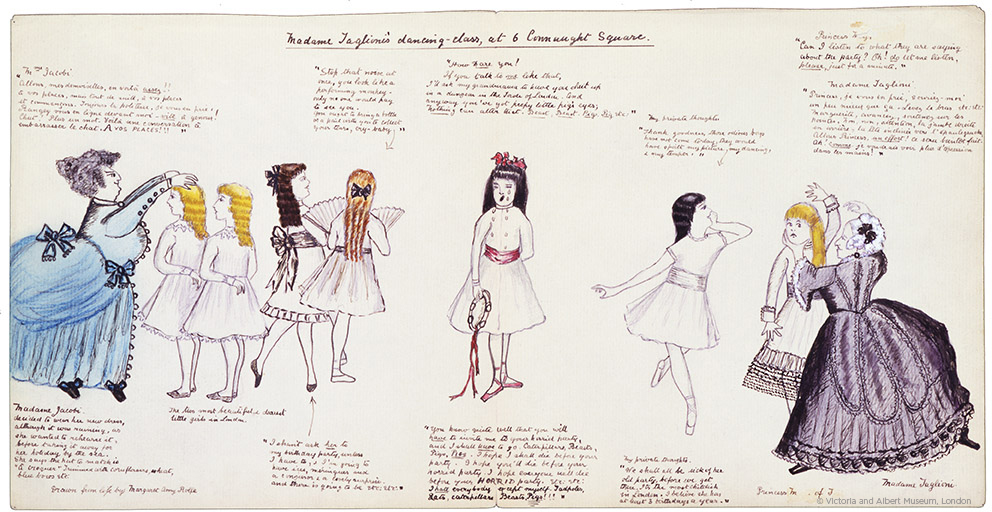 Madame Taglioni's dancing-class, at 6 Connaught Square.
Mme Jacobi.
"Allons, mesdemoiselles, en voilà assez!!
à vos places, mais tout de suite, à vos places
et commençons. Toujours la politesse, je vous en prie!
Rangez vous en ligne devant moi
Chut! Plus un mot. Voilà une conversation to
embarrasser le chat. À VOS PLACES!!! "
"Stop that noise at
once, you look like a
performing monkey-
only no one would pay
to see you.
You ought to bring a bottle
or a pail with you to collect
your tears, cry baby."
"How dare you!
If you talk to me like that,
I'll ask my grandmama to have you shut up
in a dungeon in the Tower of London. And
anyway, you've got peepy little pig's eyes,
nothing can alter that. Beast, Beast, Pig, Pig etc:"
My private thoughts
"Thank goodness, those odious boys
have not come today, they would
have spoilt my picture, my dancing,
& my temper!"
Princess May.
"Can I listen to what they are saying
about the party? Oh! do let me listen,
please, just for a minute."
Madame Taglioni
"Princess, je vous en prie, soyez-moi
un peu mieux que ça. Levez le bras etc: etc:
Marguerite, avancez, soutenez sur les
pointes, attention, la jambe droite
en arrière, la tête inclinée vers l'épaule gauche.
Allons Princess, un effort! ce sera bientôt fait.
Ah! comme je voudrais voir plus d'expression
dans les mains!"
Madame Jacobi.
decided to wear her new dress,
although it was running, as
she wanted to rehearse it,
before taking it away for
her holiday by the sea.
She says the hat to match is
"à croquer" trimmed with cornflowers, wheat,
blue bows etc:
The two most beautiful & dearest
little girls in London.
Drawn from life by Margaret Amy Rolfe
"I shan't ask her to
my birthday party, unless
I have to, & I'm going to
have ices, meringues and
a conjuror & a lovely surprise.
and there is going to be etc: etc: "
"You know quite well that you will
have to invite me to your horrid party,
and I shall have to go. Caterpillars, Beasts
Pigs, Pigs. I hope I shall die before your
party. I hope you'll die before your
horrid party, I hope everyone will die
before your HORRID party. etc: etc:
I hate everybody except myself. Tadpoles,
Rats, caterpillars Beasts, Pigs!!! "
My private thoughts.
"We shall all be sick of her
old party, before we get
there. I'm the most childish
in London. I believe she has
at least 3 birthdays a year."
Princess M - of T
Madame Taglioni
© Victoria and Albert Museum, London